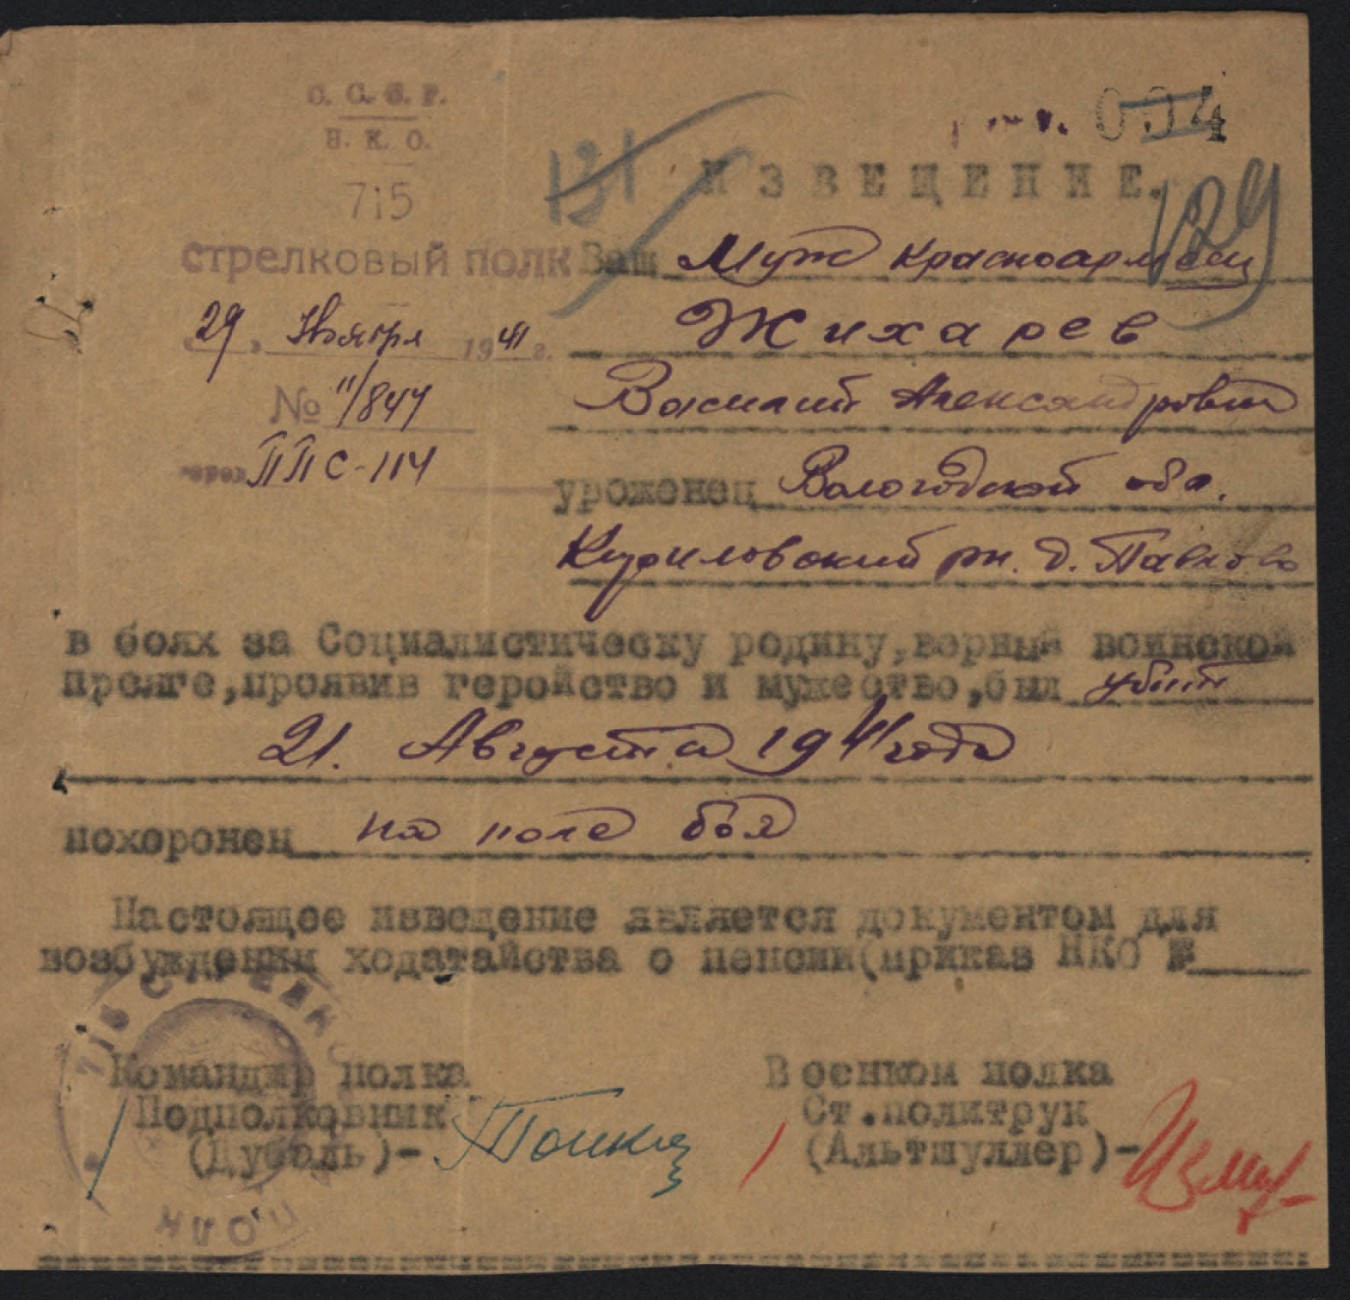 С. С. С. Р.
Н. К. О.
715
стрелковый полк
29 Ноября 1941 г.
№ 11/844
ППС-114
004
131
129
ИЗВЕЩЕНИЕ.
Ваш Муж красноармеец
Жихарев
Василий Александрович
уроженец Вологодской обл.
Кириловский рн. д. Павлово
в боях за Социалистическу родину, верный воинской
присяге, проявив геройство и мужество, был убит
21. Августа 1941 года
похоронен на поле боя
Настоящее изведение является документом для
возбуждения ходатайства о пенсии(приказ НКО №
Командир полка
Подполковник
(Дубаль)-
Военком полка
Ст.политрук
(Альтшуллер)-
715 СТРЕЛК
ПОЛК